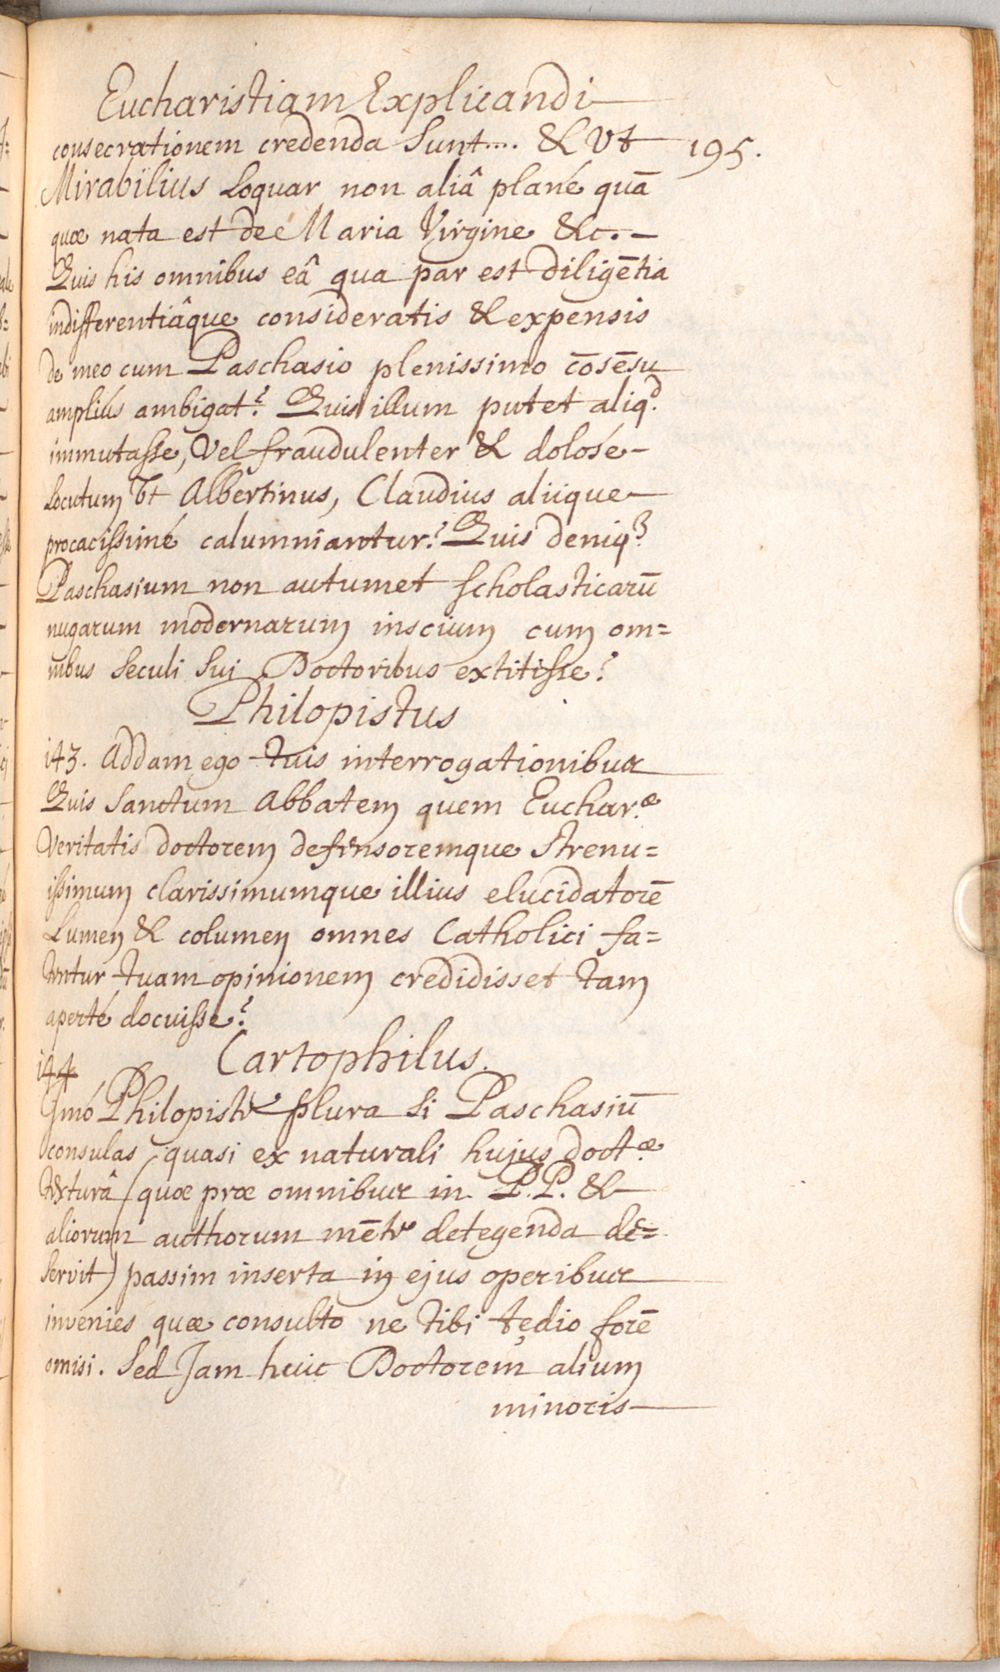 Eucharistiam Explicandi
consecrationem credenda sunt.... & Vt
195.
Mirabilius loquar non aliâ plané quā
quæ nata est de Maria Virgine &c.
Quis his omnibus eâ qua par est diligētia
indifferentiâque consideratis & expensis
de meo cum Paschasio plenissimo cōsēsu
ampliús ambigat? Quis illum putet aliq.d
immutasse, Vel fraudulenter & dolosé
locutum Vt Albertinus, Claudius aliique
procacissimé calumniantur? Quis deniq3?
Paschasium non autumet scholasticarū
nugarum modernarum inscium cum om=
nibus seculi sui Doctoribus extitisse?
Philopistus
143. Addam ego tuis interrogationibus
Quis Sanctum Abbatem quem Euchar.æ
Veritatis doctorem defensoremque strenu=
issimum clarissimumque illius elucidatorē
Lumen & columen omnes Catholici fa=
tentur tuam opinionem credidisset tam
aperté docuisse?
Cartophilus.
144
Imó Philopiste plura si Paschasiū
consulas quasi ex naturali hujus doct.æ
texturâ (quæ præ omnibus in P.P. &
aliorum authorum mēte detegenda de=
servit) passim inserta in ejus operibus
invenies quæ consulto ne tibi tędio forē
omisi. Sed Jam huic Doctorem alium
minoris